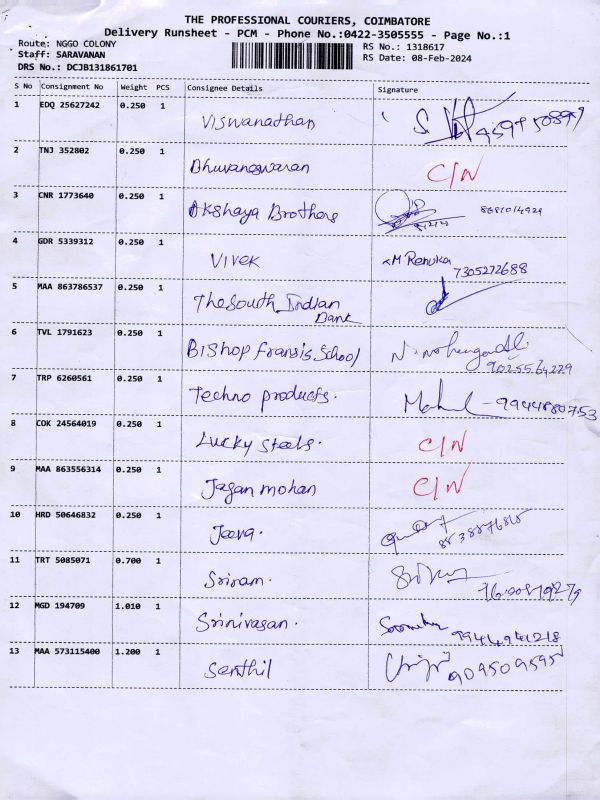 THE PROFESSIONAL COURIERS, COIMBATORE
Delivery Runsheet - PCM - Phone No.:0422-3505555 - Page No.:1
Route: NGGO COLONY
RS No.: 1318617
Staff: SARAVANAN
RS Date: 08-Feb-2024
DRS No.: DCJB131861701
S No Consignment No Weight PCS Consignee Details Signature
1 EDQ 25627242 0.250 1 Viswanathan
2 TNJ 352802 0.250 1 Bhuvaneswaran C/N
3 CNR 1773640 0.250 1 Akshaya Brothers
4 GDR 5339312 0.250 1 Vivek M Renuka
7305272688
5 MAA 863786537 0.250 1 The South Indian
Bank
6 TVL 1791623 0.250 1 Bishop Fransis School
9025564229
7 TRP 6260561 0.250 1 Techno products. 9944880753
8 COK 24564019 0.250 1 Lucky steels. C/N
9 MAA 863556314 0.250 1 Jagan mohan C/N
10 HRD 50646832 0.250 1 Jeeva.
11 TRT 5085071 0.700 1 Sriram.
12 MGD 194709 1.010 1 Srinivasan.
9944941218
13 MAA 573115400 1.200 1 Senthil
9095095595